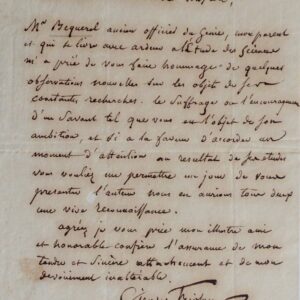 Mr Bequerel ancien officier du Genie, mon parent
et qui se livre avec ardeur a l'étude des sciences
m'a prié de vous faire hommage de quelques
observations nouvelles sur les objets de ses
constantes recherches. le suffrage ou l'encouragement
d'un savant tel que vous est l'objet de son
ambition, et si a la faveur d'accorder un
moment d'attention au resultat de ses études
vous vouliez me permettre un jour de vous
presenter l'auteur nous en aurions tous deux
une vive reconnaissance.
agréez je vous prie mon illustre ami
et honorable confrère l'assurance de mon
tendre et sincère attachement et de mon
devouement inalterable